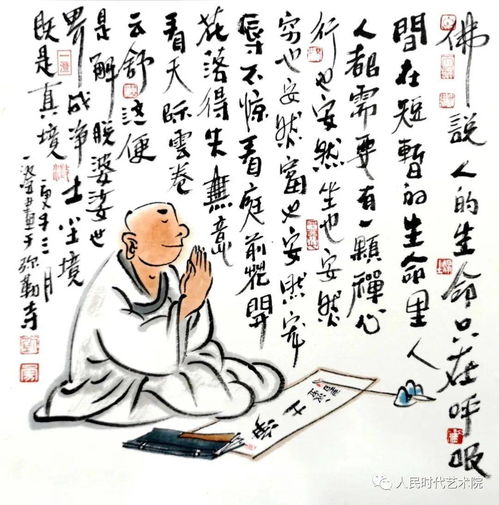 佛說人的生命只在呼吸
間在短暫的生命里人
人都需要有一顆禪心
行也安然坐也安然
窮也安然富也安然寵
辱不惊看庭前花開
花落得失無意
看天际雲卷
云舒这便
是解脫婆娑世
界成净土尘境
既是真境
三月
于弥勒寺
人民时代艺术院